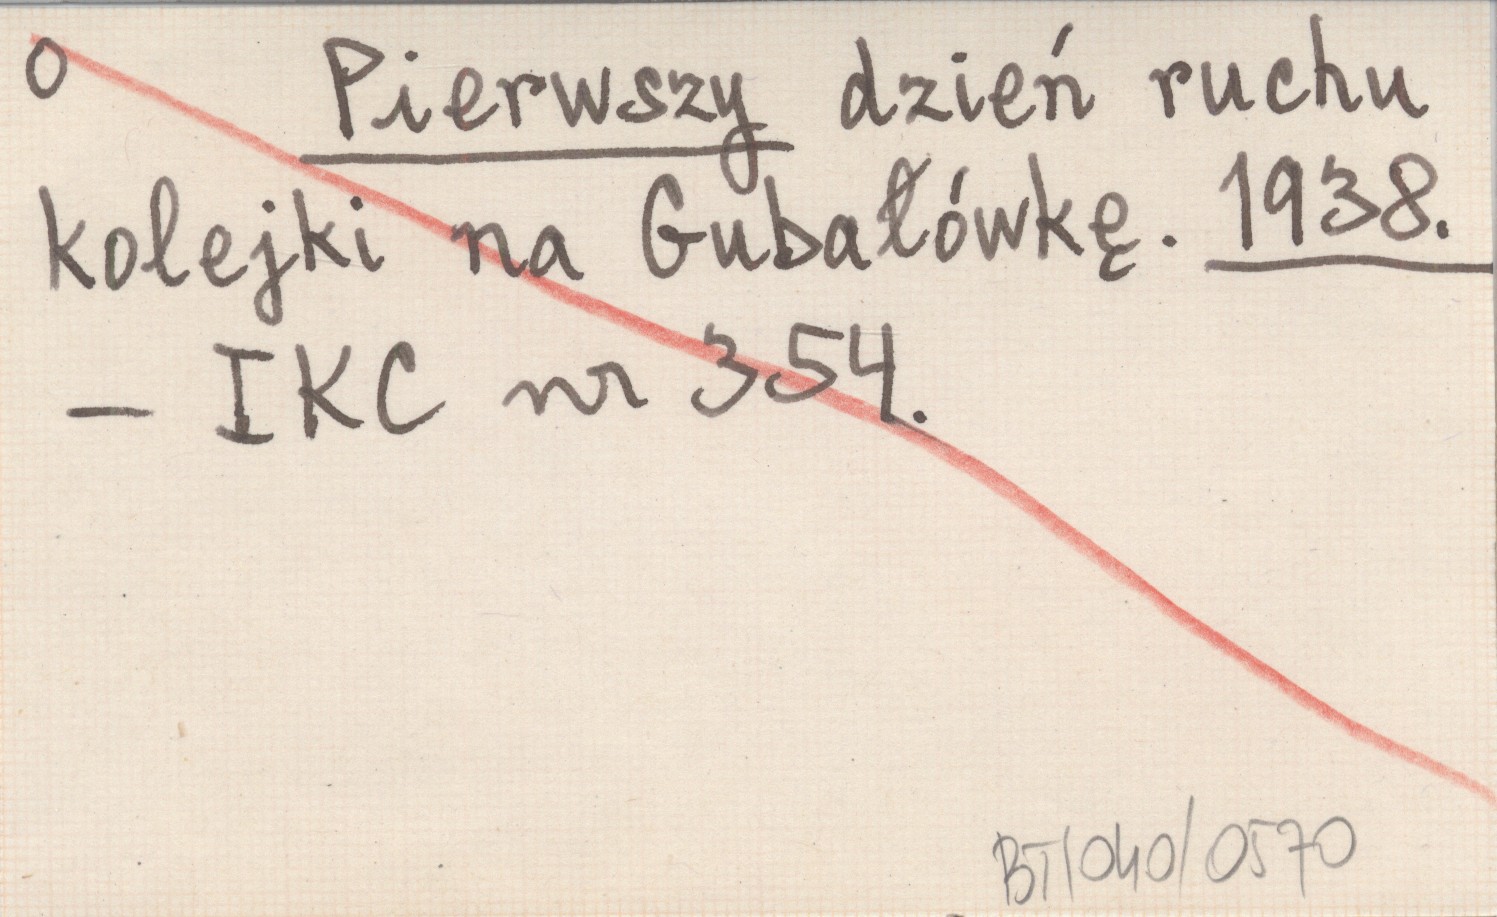 O Pierwszy dzień ruchu
kolejki na Gubałówkę. 1938.
– IKC nr 354.
BT/040/0570